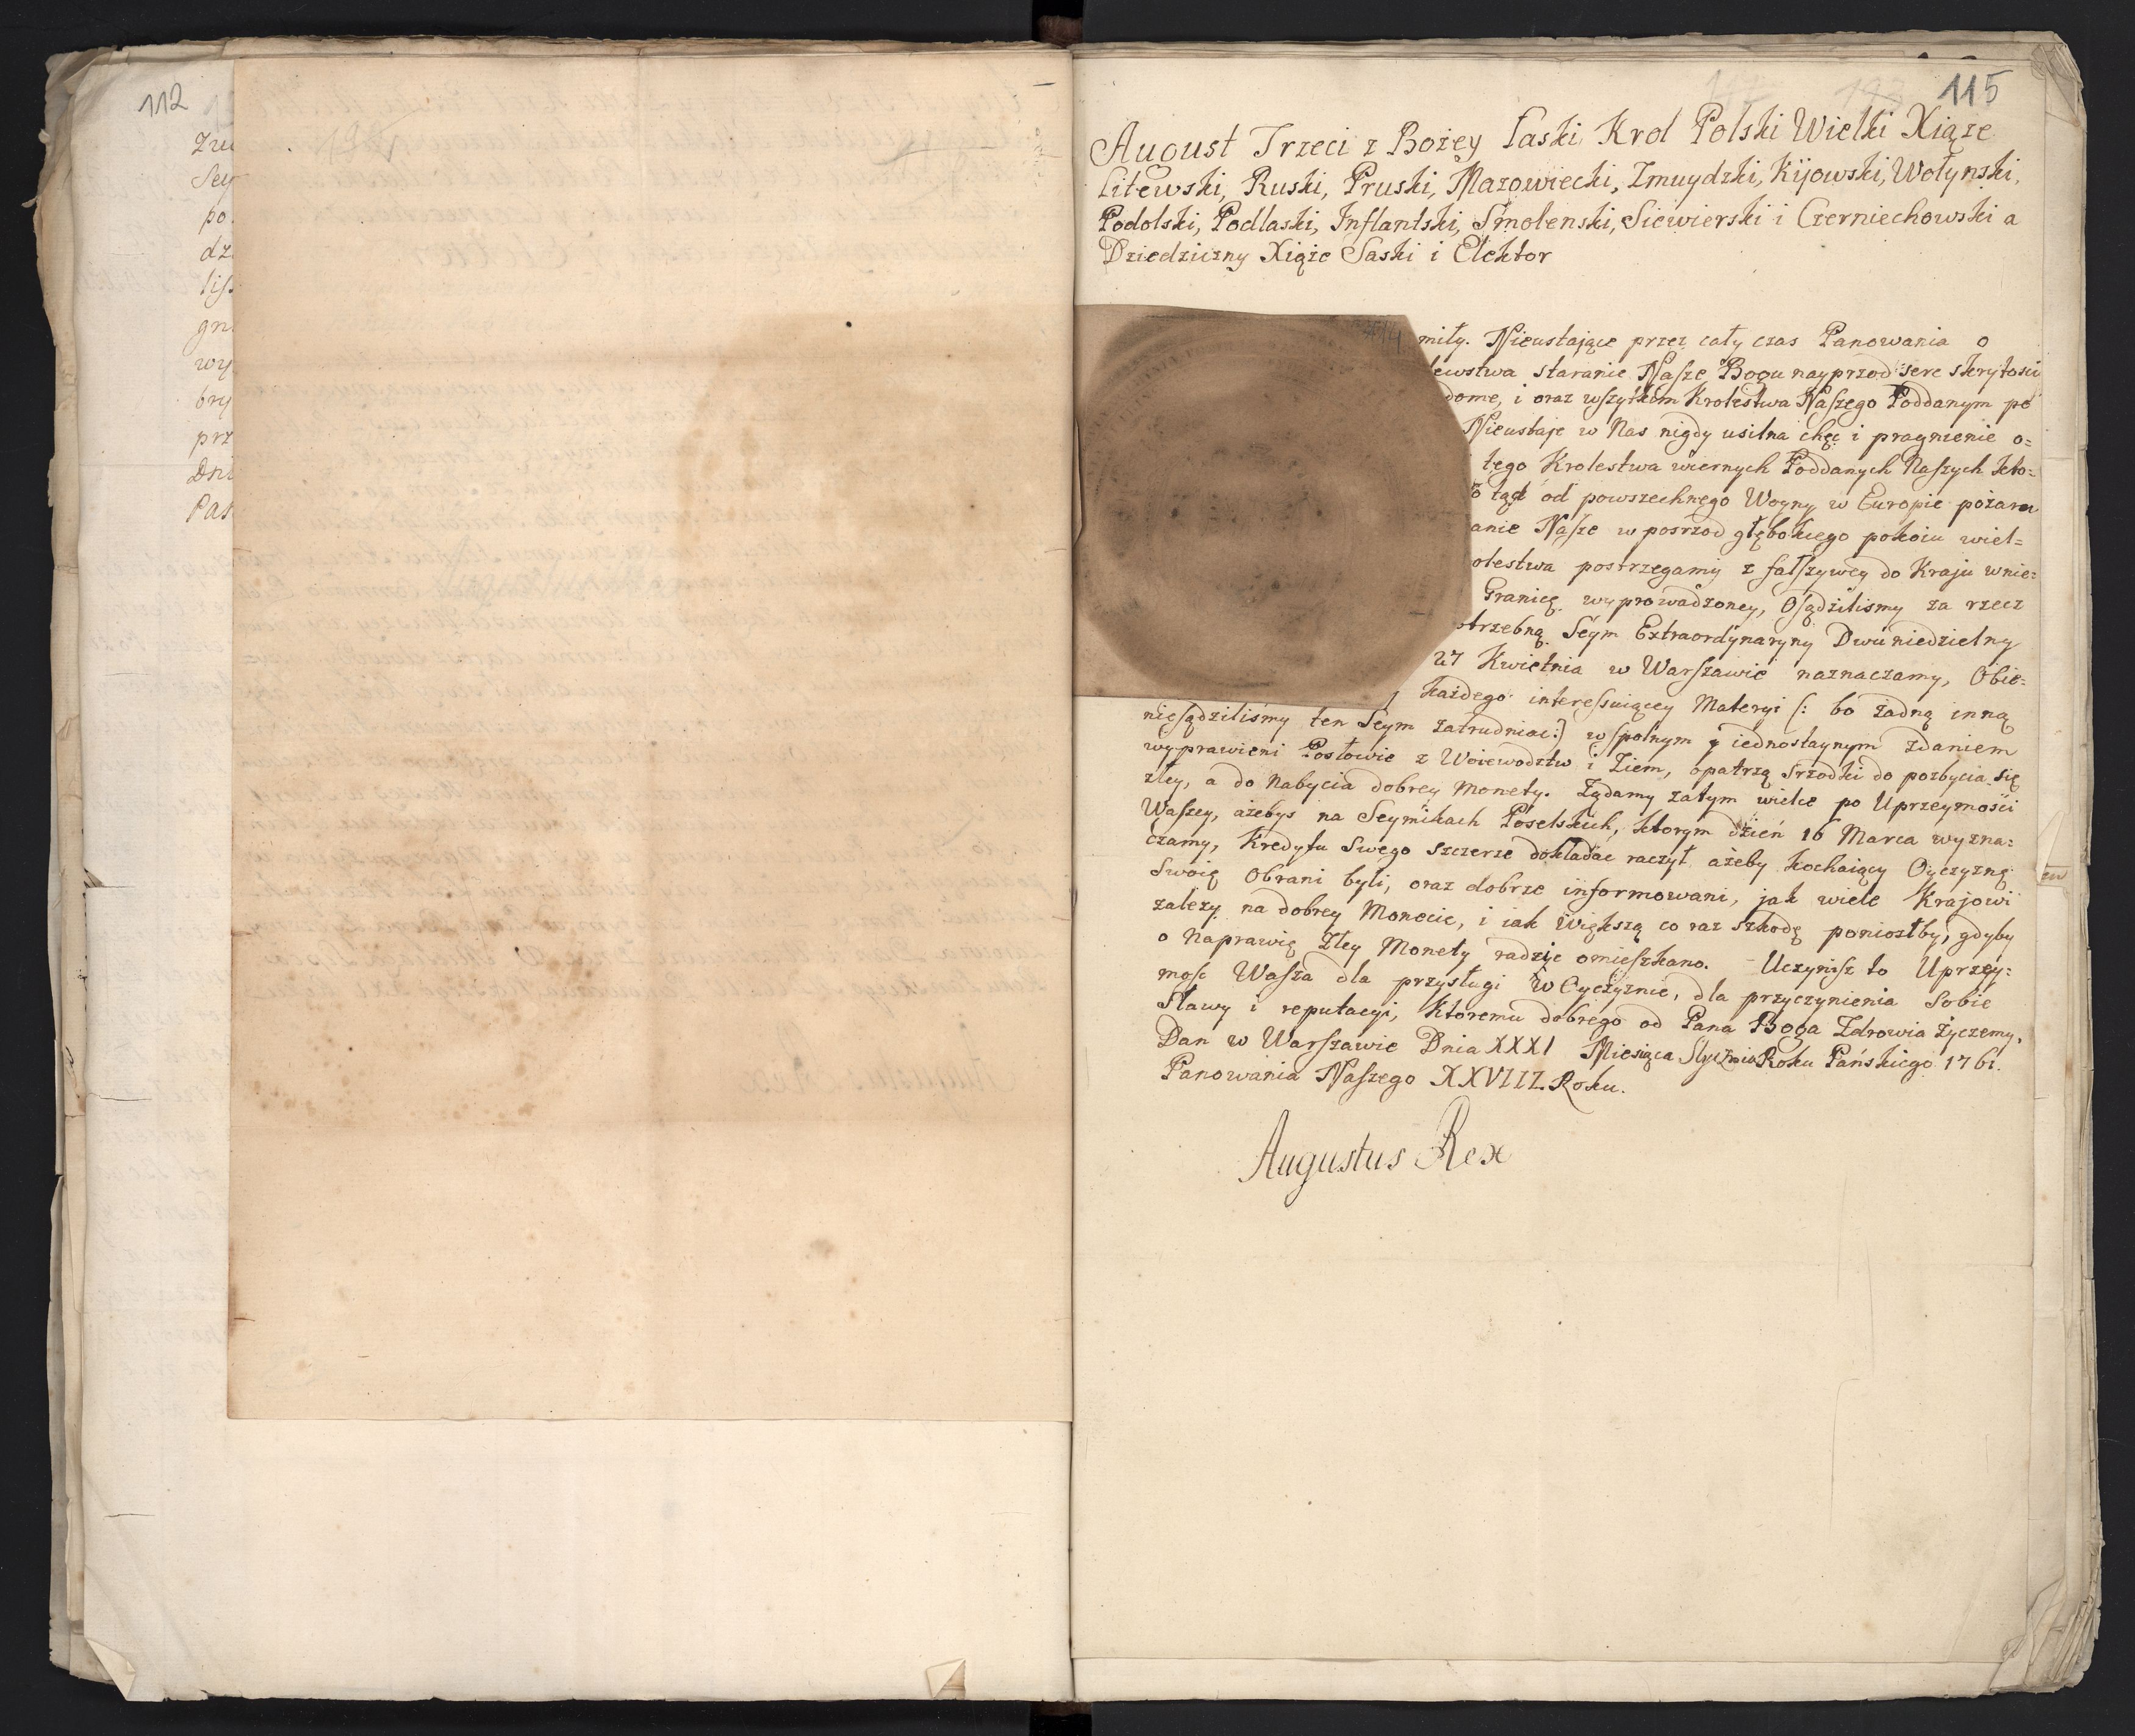 112
Zru
Sey
po.
dz.
liſ.
gn.
wy
bry
prz
Dni
Pas
115
August Trzeci z Bożey Łaski, Krol Polski Wielki Xiąze
Litewski, Ruski, Pruski, Mazowiecki, Zmuydzki, Kijowski, Wołynski,
Podolski, Podlaski, Inflantski, Smolenski, Siewierski i Czerniechowski a
Dziedziczny Xiąże Saski i Elektor
114
miły. Nieustające przez cały czas Panowania o
lewstwa staranie Naſze Bogu nayprzod serc skrytości
dome, i oraz wszytkim Krolestwa Naſzego Poddanym po
Nieustaje w Nas nigdy usilna chęć i pragnienie o=
tego Krolestwa wiernych Poddanych Naſzych kto=
tąd od powszechnego Woyny w Europie pożaru
anie Naſze w posrzod głębokiego pokoiu wiel=
olestwa postrzegamy z fałſzywey do Kraju wnie=
Granicę wyprowadzoney, Oſądziliśmy za rzecz
otrzebną Seym Extraordynaryny Dwuniedzielny
27 Kwietnia w Warſzawie naznaczamy, Obie=
każdego intereſsuiącey Materyi (: bo żadną inną
nieſądziliśmy ten Seym zatrudniac:) wſpolnym y iednostaynym zdaniem
wyprawieni Posłowie z Woiewodztw i Ziem, opatrzą srzodki do pozbycia się
złey, a do Nabycia dobrey Monety. Żądamy zatym wielce po Uprzeymości
Waſzey, ażebyś na Seymikach Poselskich, ktorym dzień 16 Marca wyzna=
czamy, Kredytu Swego szczerze dokładac raczył ażeby kochaiący Oyczyznę
Swoię Obrani byli, oraz dobrze informowani, jak wiele Krajowi
zależy na dobrey Monecie, i iak Większą co raz szkodę poniosłby, gdyby
o Naprawię złey Monety radzić omieſzkano. Uczyniſz to Uprzey=
mość Wasza dla przysługi w Oyczyznie, dla przyczynienia Sobie
Sławy i reputacyi, ktoremu dobrego od Pana Boga Zdrowia życzemy.
Dan w Warſzawie Dnia XXXI Miesiąca Stycznia Roku Pańskiego 1761.
Panowania Naſzego XXVIII. Roku.
Augustus Rex